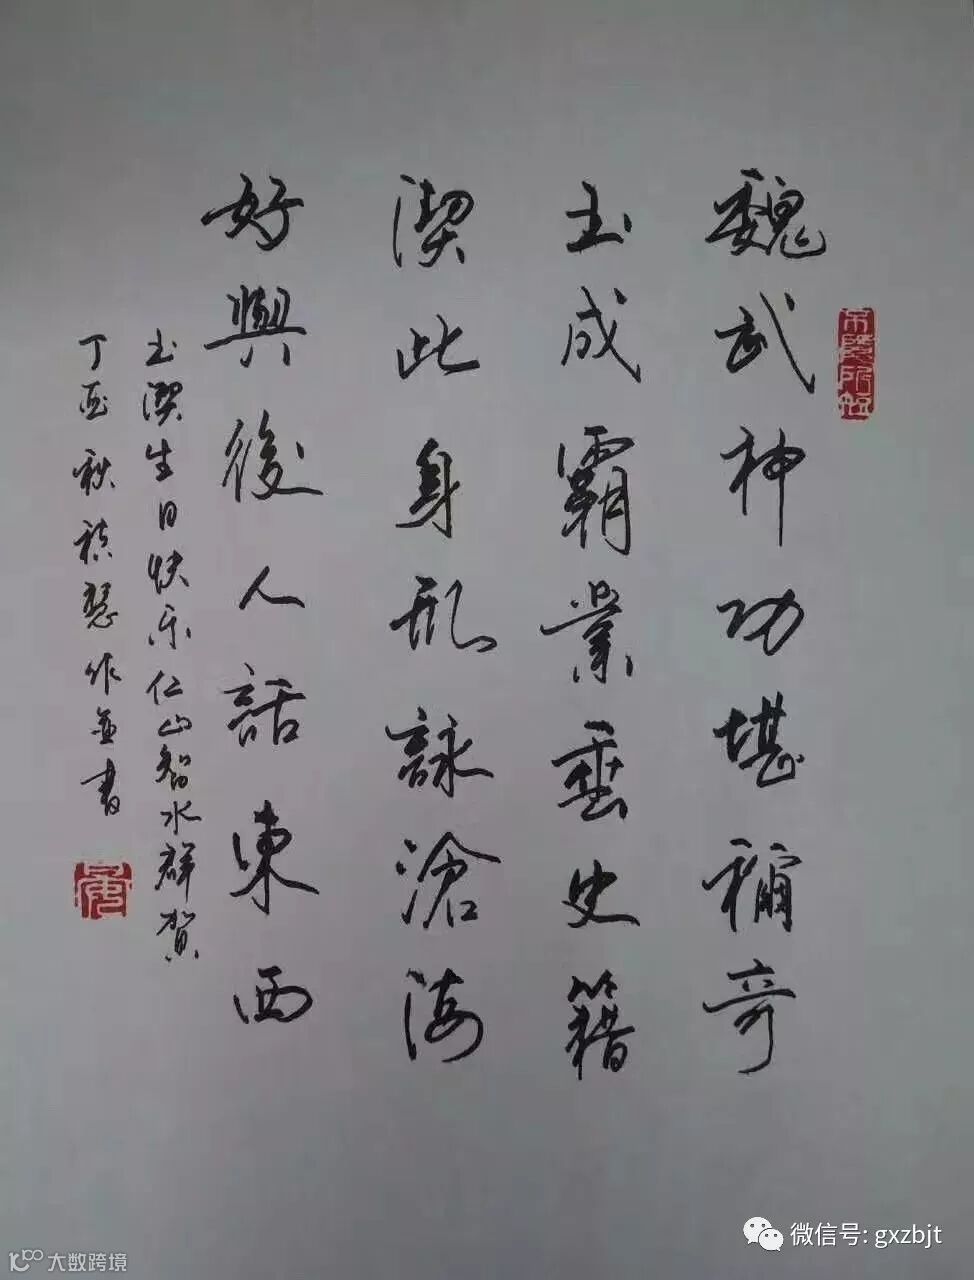 魏武神功堪穪奇
玉成霸業垂史籍
潔此身形詠滄海
好與後人話東西
玉潔生日快乐仁山智水群贺
丁酉秋作並書
微信号: gxzbjt
大数跨境